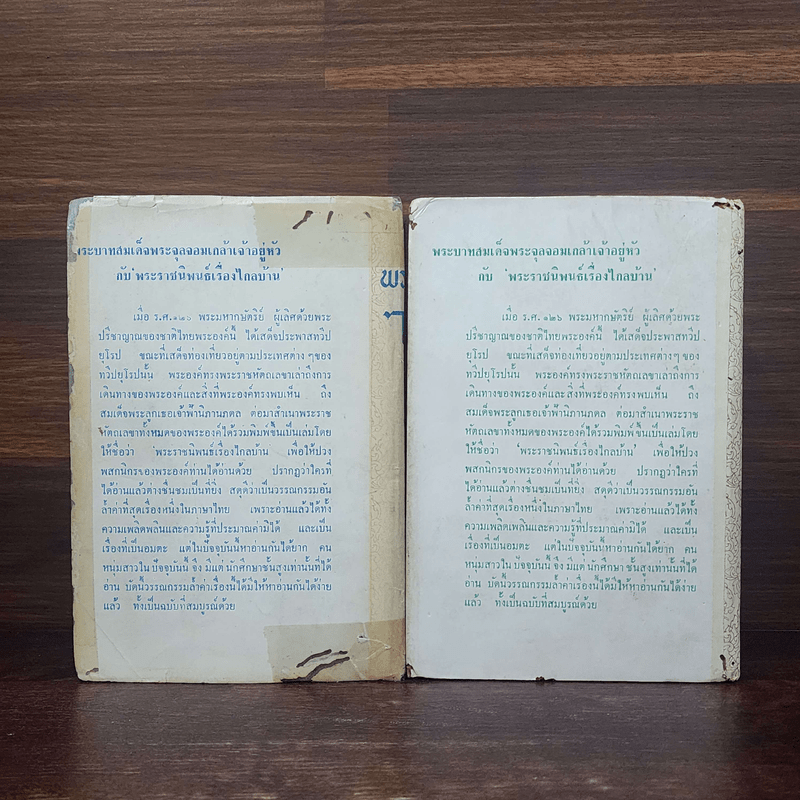 พระบาทสมเด็จพระจุลจอมเกล้าเจ้าอยู่หัว
กับ 'พระราชนิพนธ์เรื่องไกลบ้าน'
เมื่อ ร.ศ.๑๒๖ พระมหากษัตริย์ ผู้เลิศด้วยพระ
ปรีชาญาณของชาติไทยพระองค์นี้ ได้เสด็จประพาสทวีป
ยุโรป ขณะที่เสด็จท่องเที่ยวอยู่ตามประเทศต่าง ๆ ของ
ทวีปยุโรปนั้น พระองค์ทรงพระราชหัตถเลขาเล่าถึงการ
เดินทางของพระองค์และสิ่งที่พระองค์ทรงพบเห็น ถึง
สมเด็จพระลูกเธอเจ้าฟ้านิภานภดล ต่อมาสำเนาพระราช
หัตถเลขาทั้งหมดของพระองค์ได้รวมพิมพ์ขึ้นเป็นเล่มโดย
ให้ชื่อว่า 'พระราชนิพนธ์เรื่องไกลบ้าน' เพื่อให้ปวง
พสกนิกรของพระองค์ท่านได้อ่านด้วย ปรากฏว่าใครที่
ได้อ่านแล้วต่างชื่นชมเป็นที่ยิ่ง สดุดีว่าเป็นวรรณกรรมอัน
ล้ำค่าที่สุดเรื่องหนึ่งในภาษาไทย เพราะอ่านแล้วได้ทั้ง
ความเพลิดเพลินและความรู้ที่ประมาณค่ามิได้ และเป็น
เรื่องที่เป็นอมตะ แต่ในปัจจุบันนี้หาอ่านกันได้ยาก คน
หนุ่มสาวใน ปัจจุบันนี้ จึง มีแต่ นักศึกษา ชั้นสูงเท่านั้นที่ได้
อ่าน บัดนี้วรรณกรรมล้ำค่าเรื่องนี้ได้มีให้หาอ่านกันได้ง่าย
แล้ว ทั้งเป็นฉบับที่สมบูรณ์ด้วย
พระบาทสมเด็จพระจุลจอมเกล้าเจ้าอยู่หัว
กับ 'พระราชนิพนธ์เรื่องไกลบ้าน'
เมื่อ ร.ศ.๑๒๖ พระมหากษัตริย์ ผู้เลิศด้วยพระ
ปรีชาญาณของชาติไทยพระองค์นี้ ได้เสด็จประพาสทวีป
ยุโรป ขณะที่เสด็จท่องเที่ยวอยู่ตามประเทศต่าง ๆ ของ
ทวีปยุโรปนั้น พระองค์ทรงพระราชหัตถเลขาเล่าถึงการ
เดินทางของพระองค์และสิ่งที่พระองค์ทรงพบเห็น ถึง
สมเด็จพระลูกเธอเจ้าฟ้านิภานภดล ต่อมาสำเนาพระราช
หัตถเลขาทั้งหมดของพระองค์ได้รวมพิมพ์ขึ้นเป็นเล่มโดย
ให้ชื่อว่า 'พระราชนิพนธ์เรื่องไกลบ้าน' เพื่อให้ปวง
พสกนิกรของพระองค์ท่านได้อ่านด้วย ปรากฏว่าใครที่
ได้อ่านแล้วต่างชื่นชมเป็นที่ยิ่ง สดุดีว่าเป็นวรรณกรรมอัน
ล้ำค่าที่สุดเรื่องหนึ่งในภาษาไทย เพราะอ่านแล้วได้ทั้ง
ความเพลิดเพลินและความรู้ที่ประมาณค่ามิได้ และเป็น
เรื่องที่เป็นอมตะ แต่ในปัจจุบันนี้หาอ่านกันได้ยาก คน
หนุ่มสาวใน ปัจจุบันนี้ จึง มีแต่ นักศึกษา ชั้นสูงเท่านั้นที่ได้
อ่าน บัดนี้วรรณกรรมล้ำค่าเรื่องนี้ได้มีให้หาอ่านกันได้ง่าย
แล้ว ทั้งเป็นฉบับที่สมบูรณ์ด้วย